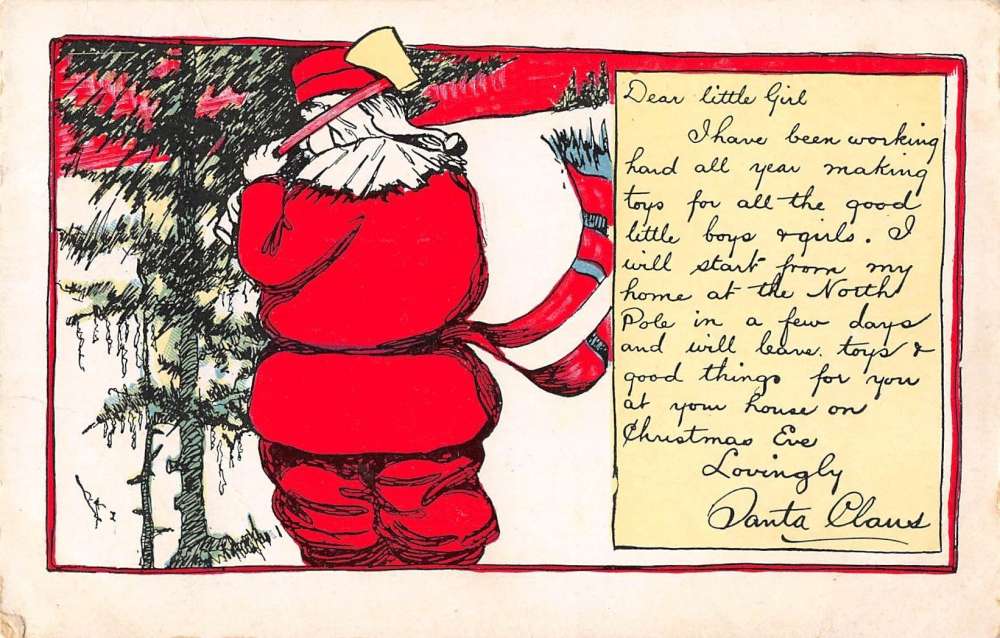 Dear little Girl
I have been working
hard all year making
toys for all the good
little boys & girls. I
will start from my
home at the North
Pole in a few days
and will leave. toys &
good things for you
at your house on
Christmas Eve
Lovingly
Santa Claus